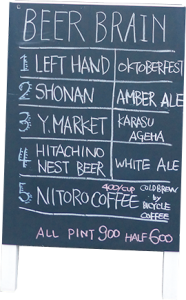 BEER BRAIN
1 LEFT HAND OKTOBERFEST
2 SHONAN AMBER ALE
3 Y.MARKET KARASU AGEHA
4 HITACHINO NEST BEER WHITE ALE
5 NITORO COFFEE 400/CUP COLDBREW by BICYCLE COFFEE
ALL PINT 900 HALF 600